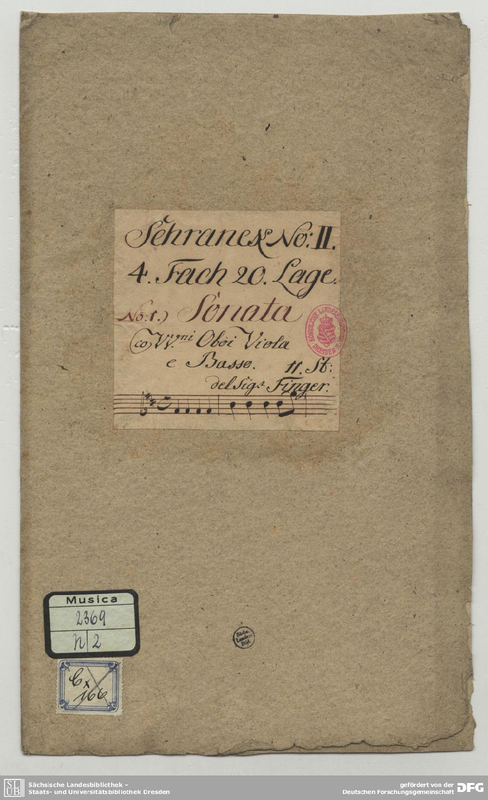 Schranck No: II.
4. Fach 20. Lage.
No. 1.) Sonata
co VV:ni Oboi Viola
e Basso. 11. St:
del Sig.r Finger.
Musica
2369
N 2
Cx
166
Sächsische Landesbibliothek –
Staats- und Universitätsbibliothek Dresden
gefördert von der
Deutschen Forschungsgemeinschaft
DFG